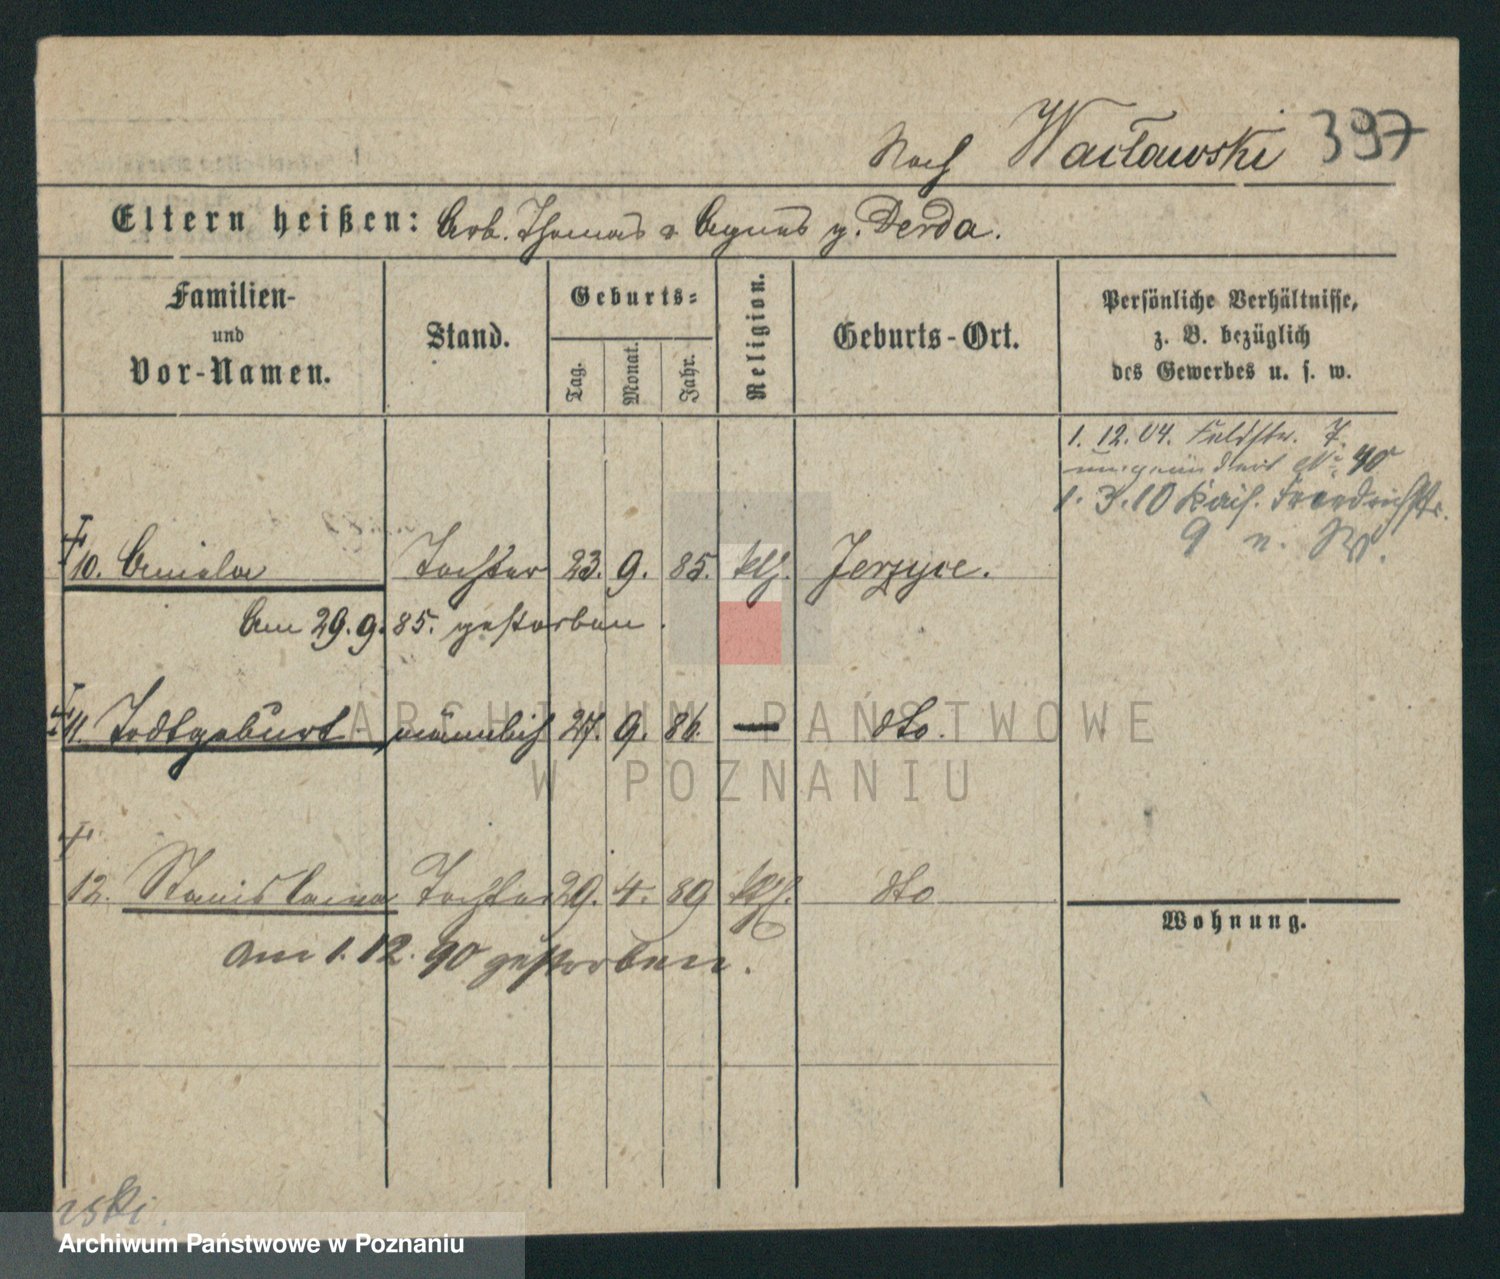 Noch Wacławski 397
Eltern heißen: Arb. Thomas & Agnes g. Derda.
Familien-
und
Vor-Namen.
Stand.
Geburts:
Tag.
Monat.
Jahr.
Religion.
Geburts-Ort.
Persönliche Verhältnisse,
z. B. bezüglich
des Gewerbes u. s. w.
1. 12. 04. Feldstr. 7.
umgeändert No 40
1. 3. 10 Kais. Friedrichstr.
9 n. W.
10. Aniela Tochter 23. 9. 85. kth. Jerzyce.
Am 29. 9. 85. gestorben.
11. Todtgeburt männlich 27. 9. 86. — dto.
12. Stanislawa Tochter 29. 4. 89 kth. dto
am 1. 12. 90 gestorben.
Wohnung.
ARCHIWUM PAŃSTWOWE
W POZNANIU
Archiwum Państwowe w Poznaniu